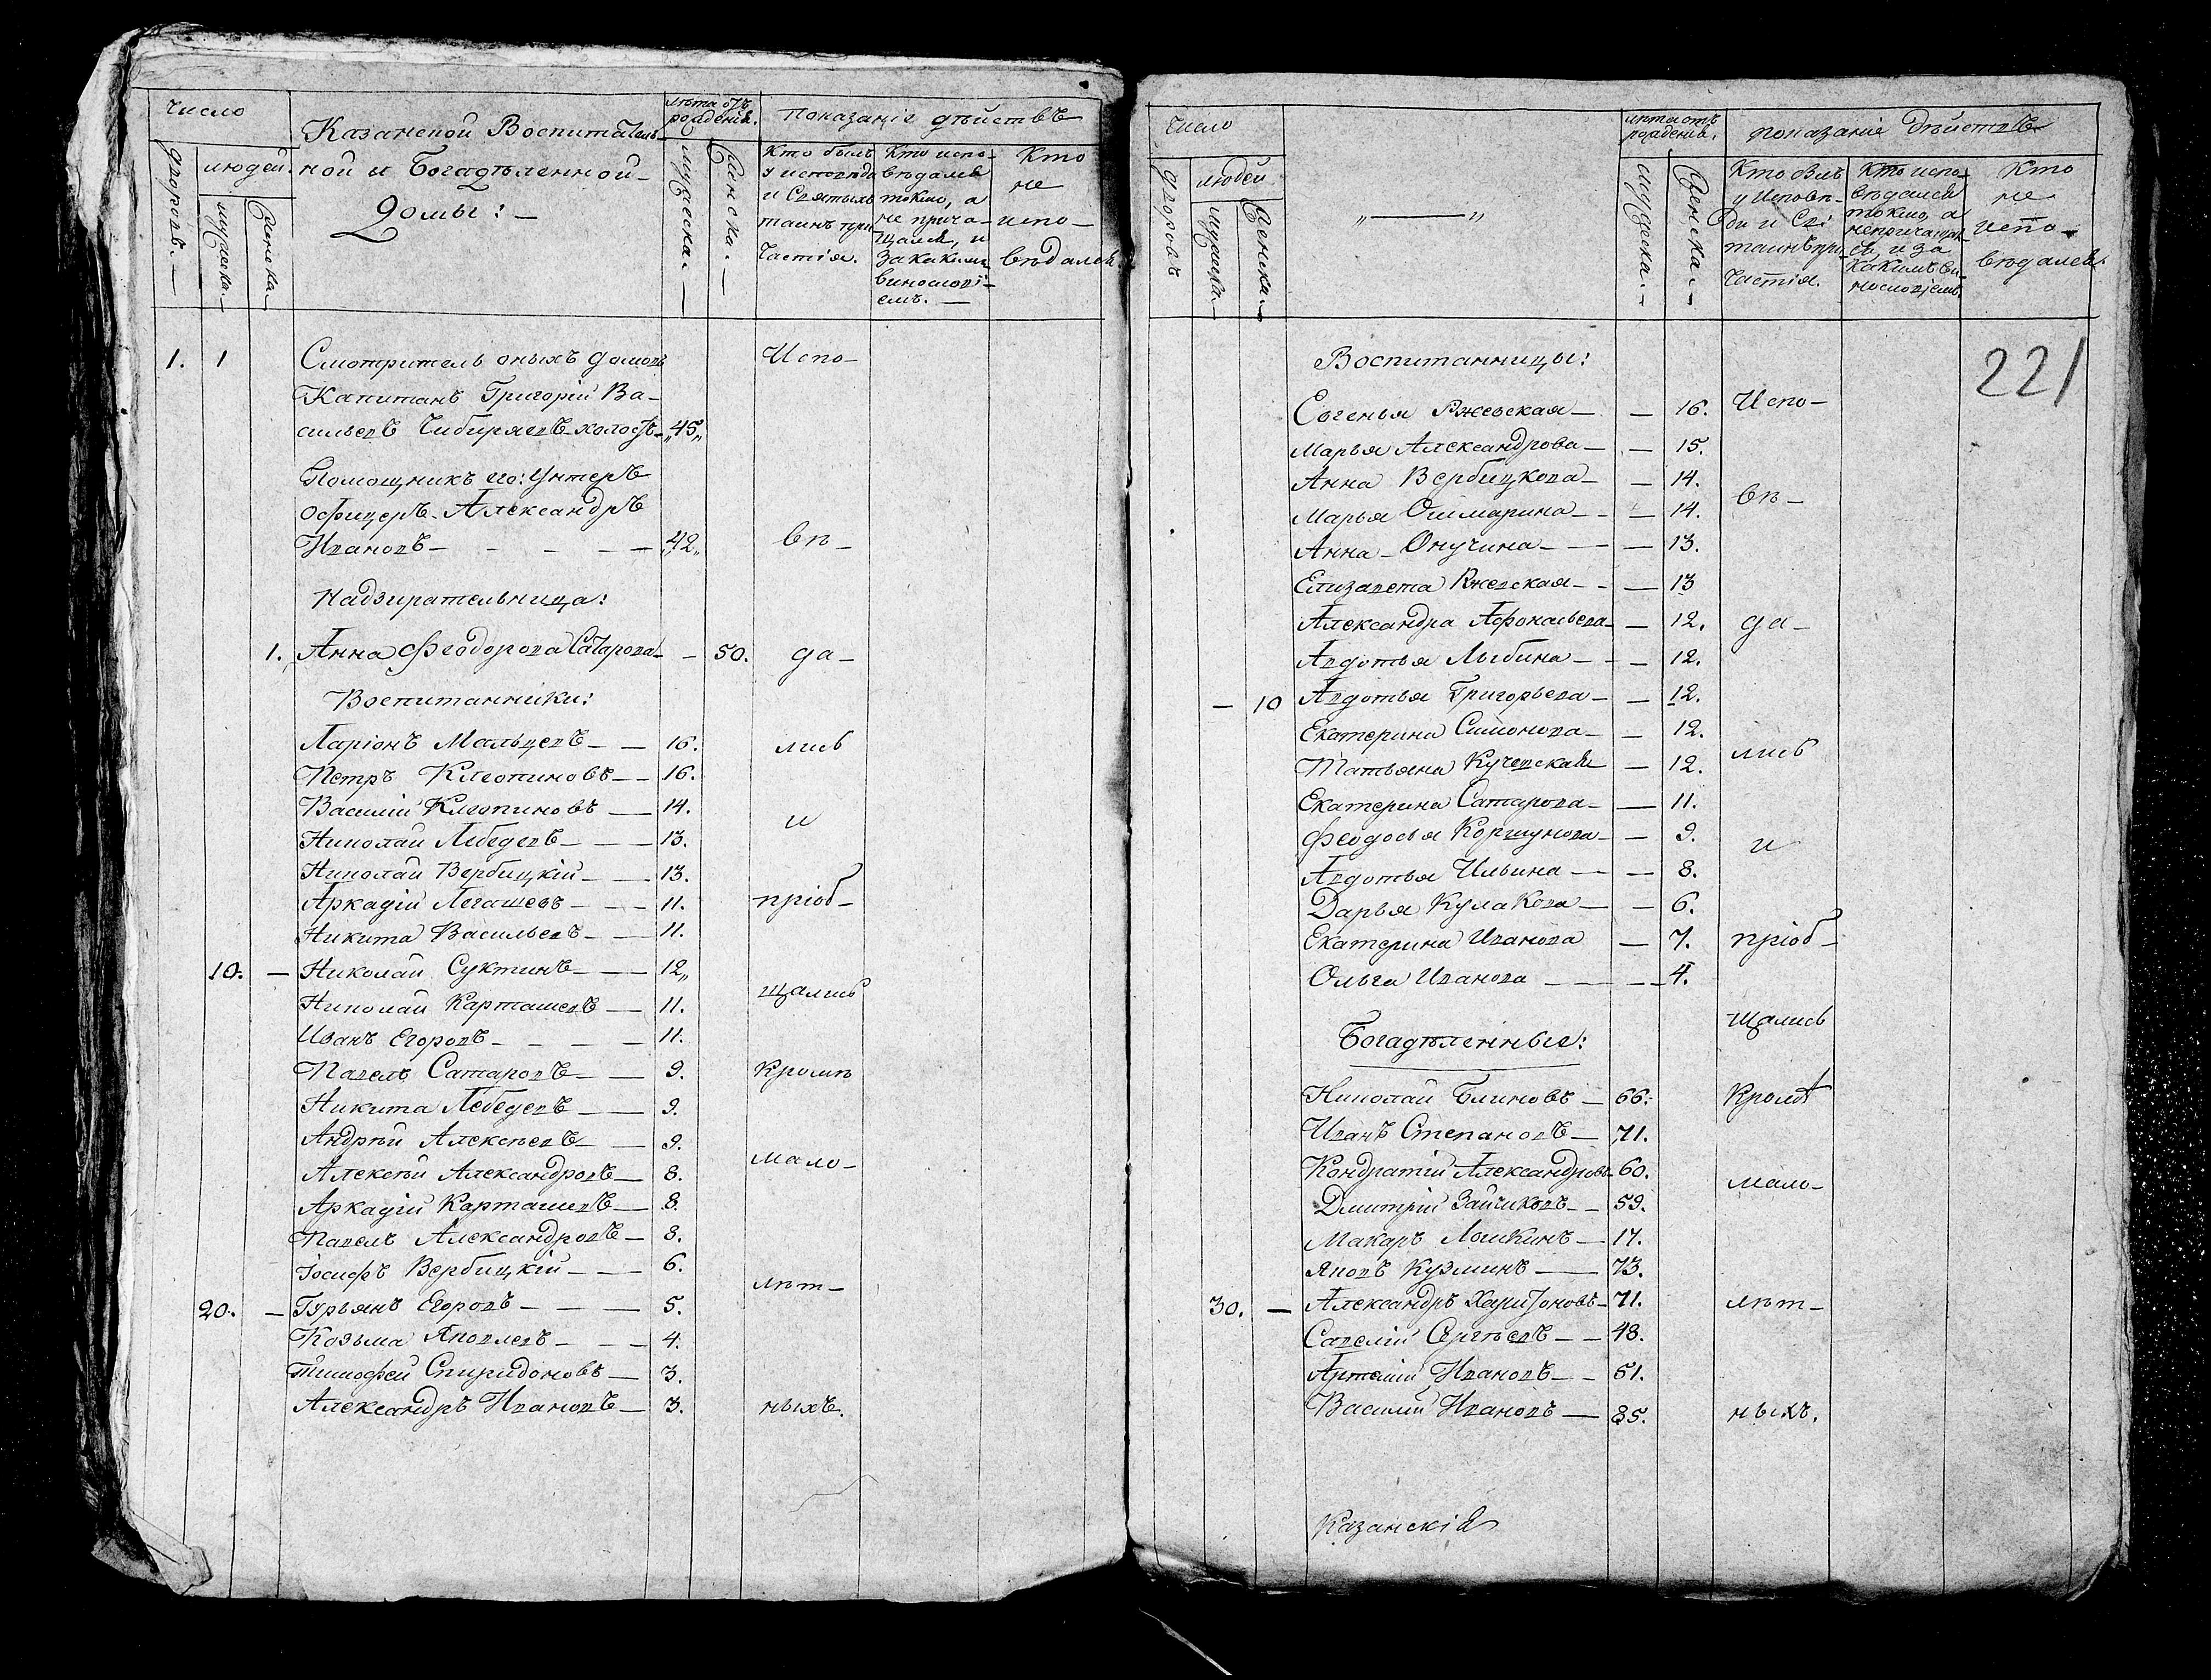 Число
Казанской Воспитатель-
лѣта отъ
рожденія.
показаніе дѣйствъ
дворовъ.
людей.
мужеска.
женска.
ной и Богадѣленной
Домы:
мужеска.
женска.
Кто былъ
у исповѣди
и Святыхъ
таинъ при-
частія.
Кто испо-
вѣдался
токмо, а
не прича-
щался, и
за какимъ
винословi-
емъ.
Кто
не
испо-
вѣдался.
1. 1 Смотритель оныхъ домовъ Испо-
Капитанъ Григорій Ва-
сильевъ Чибирясвъ холостъ „45„
Помощникъ его: Унтеръ
офицеръ Александръ
Ивановъ — 42„ вѣ-
Надзирательница:
1. Анна Феодорова Сатарова — 50. да-
Воспитанники:
Ларіонъ Мальцевъ — 16. лись
Петръ Клеопиновъ — 16.
Василій Клеопиновъ — 14. и
Николай Лебедевъ — 13.
Николай Вербицкій — 13.
Аркадій Легашевъ — 11. пріоб-
Никита Васильевъ — 11.
10. — Николай Суктинъ — 12„
Николай Карташевъ — 11. щались
Иванъ Егоровъ — 11.
Павелъ Сатаровъ — 9. кромѣ
Никита Лебедевъ — 9.
Андрей Алексѣевъ — 9.
Алексѣй Александровъ — 8. мало-
Аркадій Карташевъ — 8.
Павелъ Александровъ — 8.
Іосифъ Вербицкій — 6. лѣт-
20. — Гурьянъ Егоровъ — 5.
Козьма Яковлевъ — 4.
Тимофей Спиридоновъ — 3.
Александръ Ивановъ — 3. ныхъ.
Число
лѣта отъ
рожденія.
показаніе дѣйствъ
дворовъ
людей
мужеска.
женска.
„ — „
мужеска.
женска.
Кто былъ
у Исповѣ-
ди и Свя
таинъ при-
частія.
Кто испо-
вѣдался
токмо, а
непричащал-
ся, и за
какимъ ви-
нословіемъ.
Кто
не
испо-
вѣдался.
221
Воспитанницы:
Евгенья Ржевская — 16. Испо-
Марья Александрова — 15.
Анна Вербицкова — 14.
Марья Ошмарина — 14. вѣ-
Анна Онучина — 13.
Елизавета Ржевская — 13
Александра Афонасьева — 12. да-
Авдотья Лыбина — 12.
— 10 Авдотья Григорьева — 12.
Екатерина Симонова — 12.
Татьяна Кучевская — 12. лись
Екатерина Сатарова — 11.
Феодосья Коршунова — 9. и
Авдотья Ильина — 8.
Дарья Кулакова — 6.
Екатерина Иванова — 7. пріоб-
Ольга Иванова — 4.
щались
Богадѣленные:
Николай Блиновъ — 66. кромѣ
Иванъ Степановъ — 71.
Кондратій Александровъ 60. мало-
Дмитрій Зайчиковъ — 59.
Макаръ Лошкинъ — 17.
Яковъ Кузминъ — 73.
30. — Александръ Харитоновъ — 71. лѣт-
Савелій Сергѣевъ — 48.
Артемій Ивановъ — 51.
Василій Ивановъ — 85. ныхъ.
Казанскія